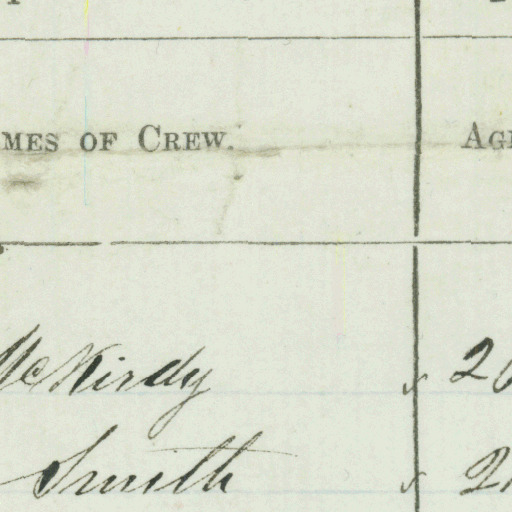 MES OF CREW.
McKirdy
Smith